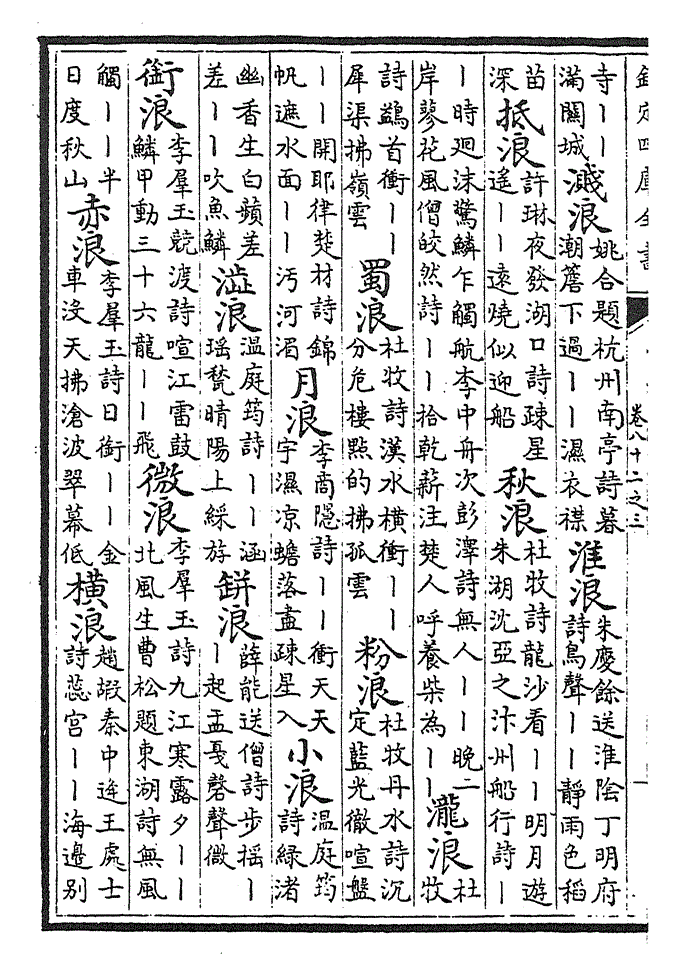 欽定四庫全書
卷八十二之三
寺丨丨
滿關城
濺浪
姚合題杭州南亭詩暮
潮簷下過丨丨濕衣襟
淮浪
朱慶餘送淮陰丁明府
詩鳥聲丨丨靜雨色稻
苗
深
抵浪
許琳夜發湖口詩疎星
遙丨丨遠燒似迎船
秋浪
杜牧詩龍沙看丨丨明月遊
朱湖沈亞之汴州船行詩丨
丨時廻沫驚鱗乍觸航李中舟次彭澤詩無人丨丨晚二
岸蓼花風僧皎然詩丨丨拾乾薪注楚人呼養柴為丨丨
瀧浪
杜
牧
詩鷁首衝丨丨
犀渠拂嶺雲
蜀浪
杜牧詩漢水橫衝丨丨
分危樓點的拂孤雲
粉浪
杜牧丹水詩沉
定藍光徹喧盤
丨丨開耶律楚材詩錦
帆遮水面丨丨汚河湄
月浪
李商隱詩丨丨衝天天
宇濕凉蟾落盡疎星入
小浪
溫庭筠
詩綠渚
幽香生白蘋差
差丨丨吹魚鱗
澁浪
溫庭筠詩丨丨涵
瑶甃晴陽上綵斿
缾浪
薛能送僧詩步摇丨
丨起盂戞磬聲微
銜浪
李羣玉競渡詩喧江雷鼓
鱗甲動三十六龍丨丨飛
微浪
李羣玉詩九江寒露夕丨丨
北風生曹松題東湖詩無風
觸丨丨半
日度秋山
赤浪
李羣玉詩日銜丨丨金
車沒天拂滄波翠幕低
橫浪
趙嘏秦中逢王處士
詩蕊宮丨丨海邊别